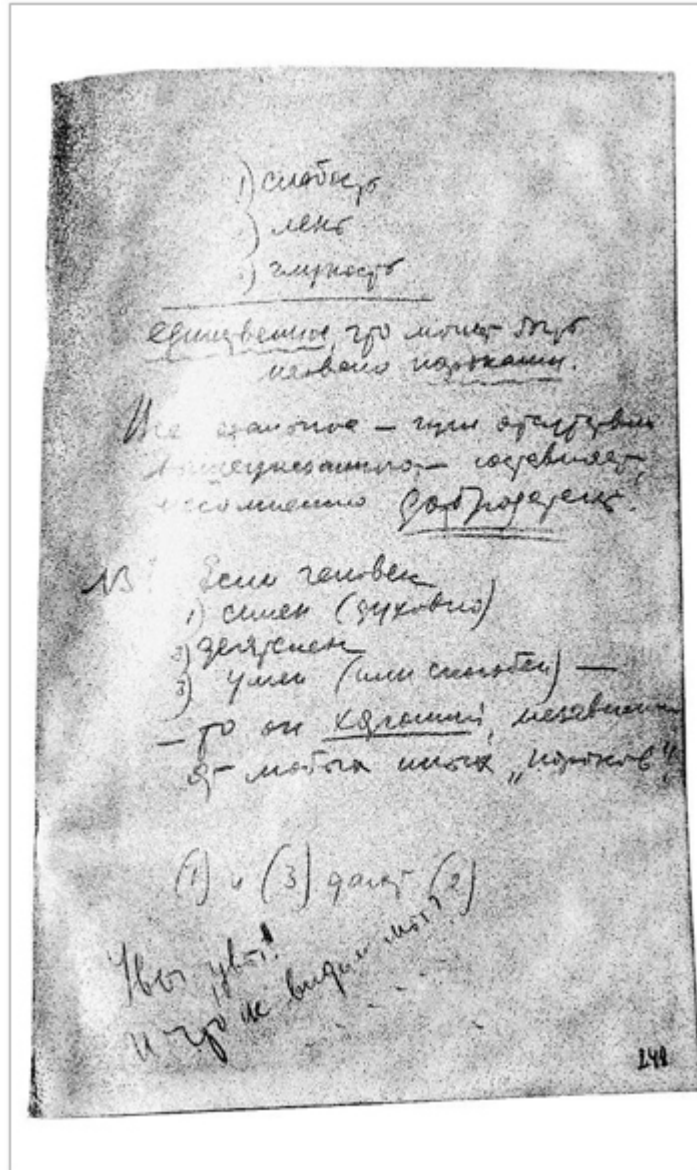 1) слабость
2) лень
3) глупость
единственное, что может быть
названо пороками.
Все остальное — при отсутствии
вышеуказанного — составляет,
несомненно добродетель.
NB! Если человек
1) силен (духовно)
2) деятелен
3) умен (или способен) —
— то он хороший, независимо
от любых иных „пороков“!
(1) и (3) дают (2)
Увы, увы!
И что ж видим мы?
242